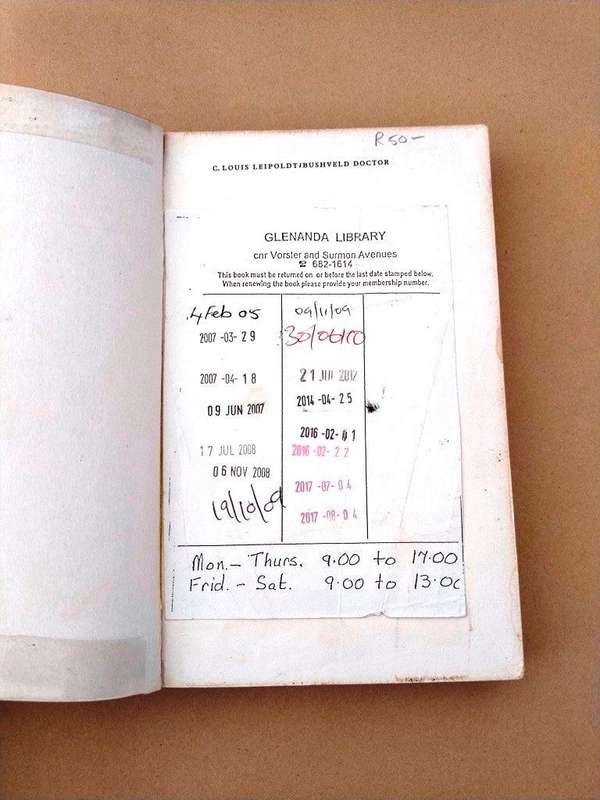 R50-
C. LOUIS LEIPOLDT/BUSHVELD DOCTOR
GLENANDA LIBRARY
cnr Vorster and Surmon Avenues
☎ 682-1614
This book must be returned on or before the last date stamped below.
When renewing the book please provide your membership number.
4 Feb 05
2007-03-29
2007-04-18
09 JUN 2007
17 JUL 2008
06 NOV 2008
19/10/09
09/11/09
30/06/10
21 JUL 2012
2014-04-25
2016-02-01
2016-02-22
2017-07-04
2017-08-04
Mon.- Thurs. 9.00 to 17.00
Frid. - Sat. 9.00 to 13.00